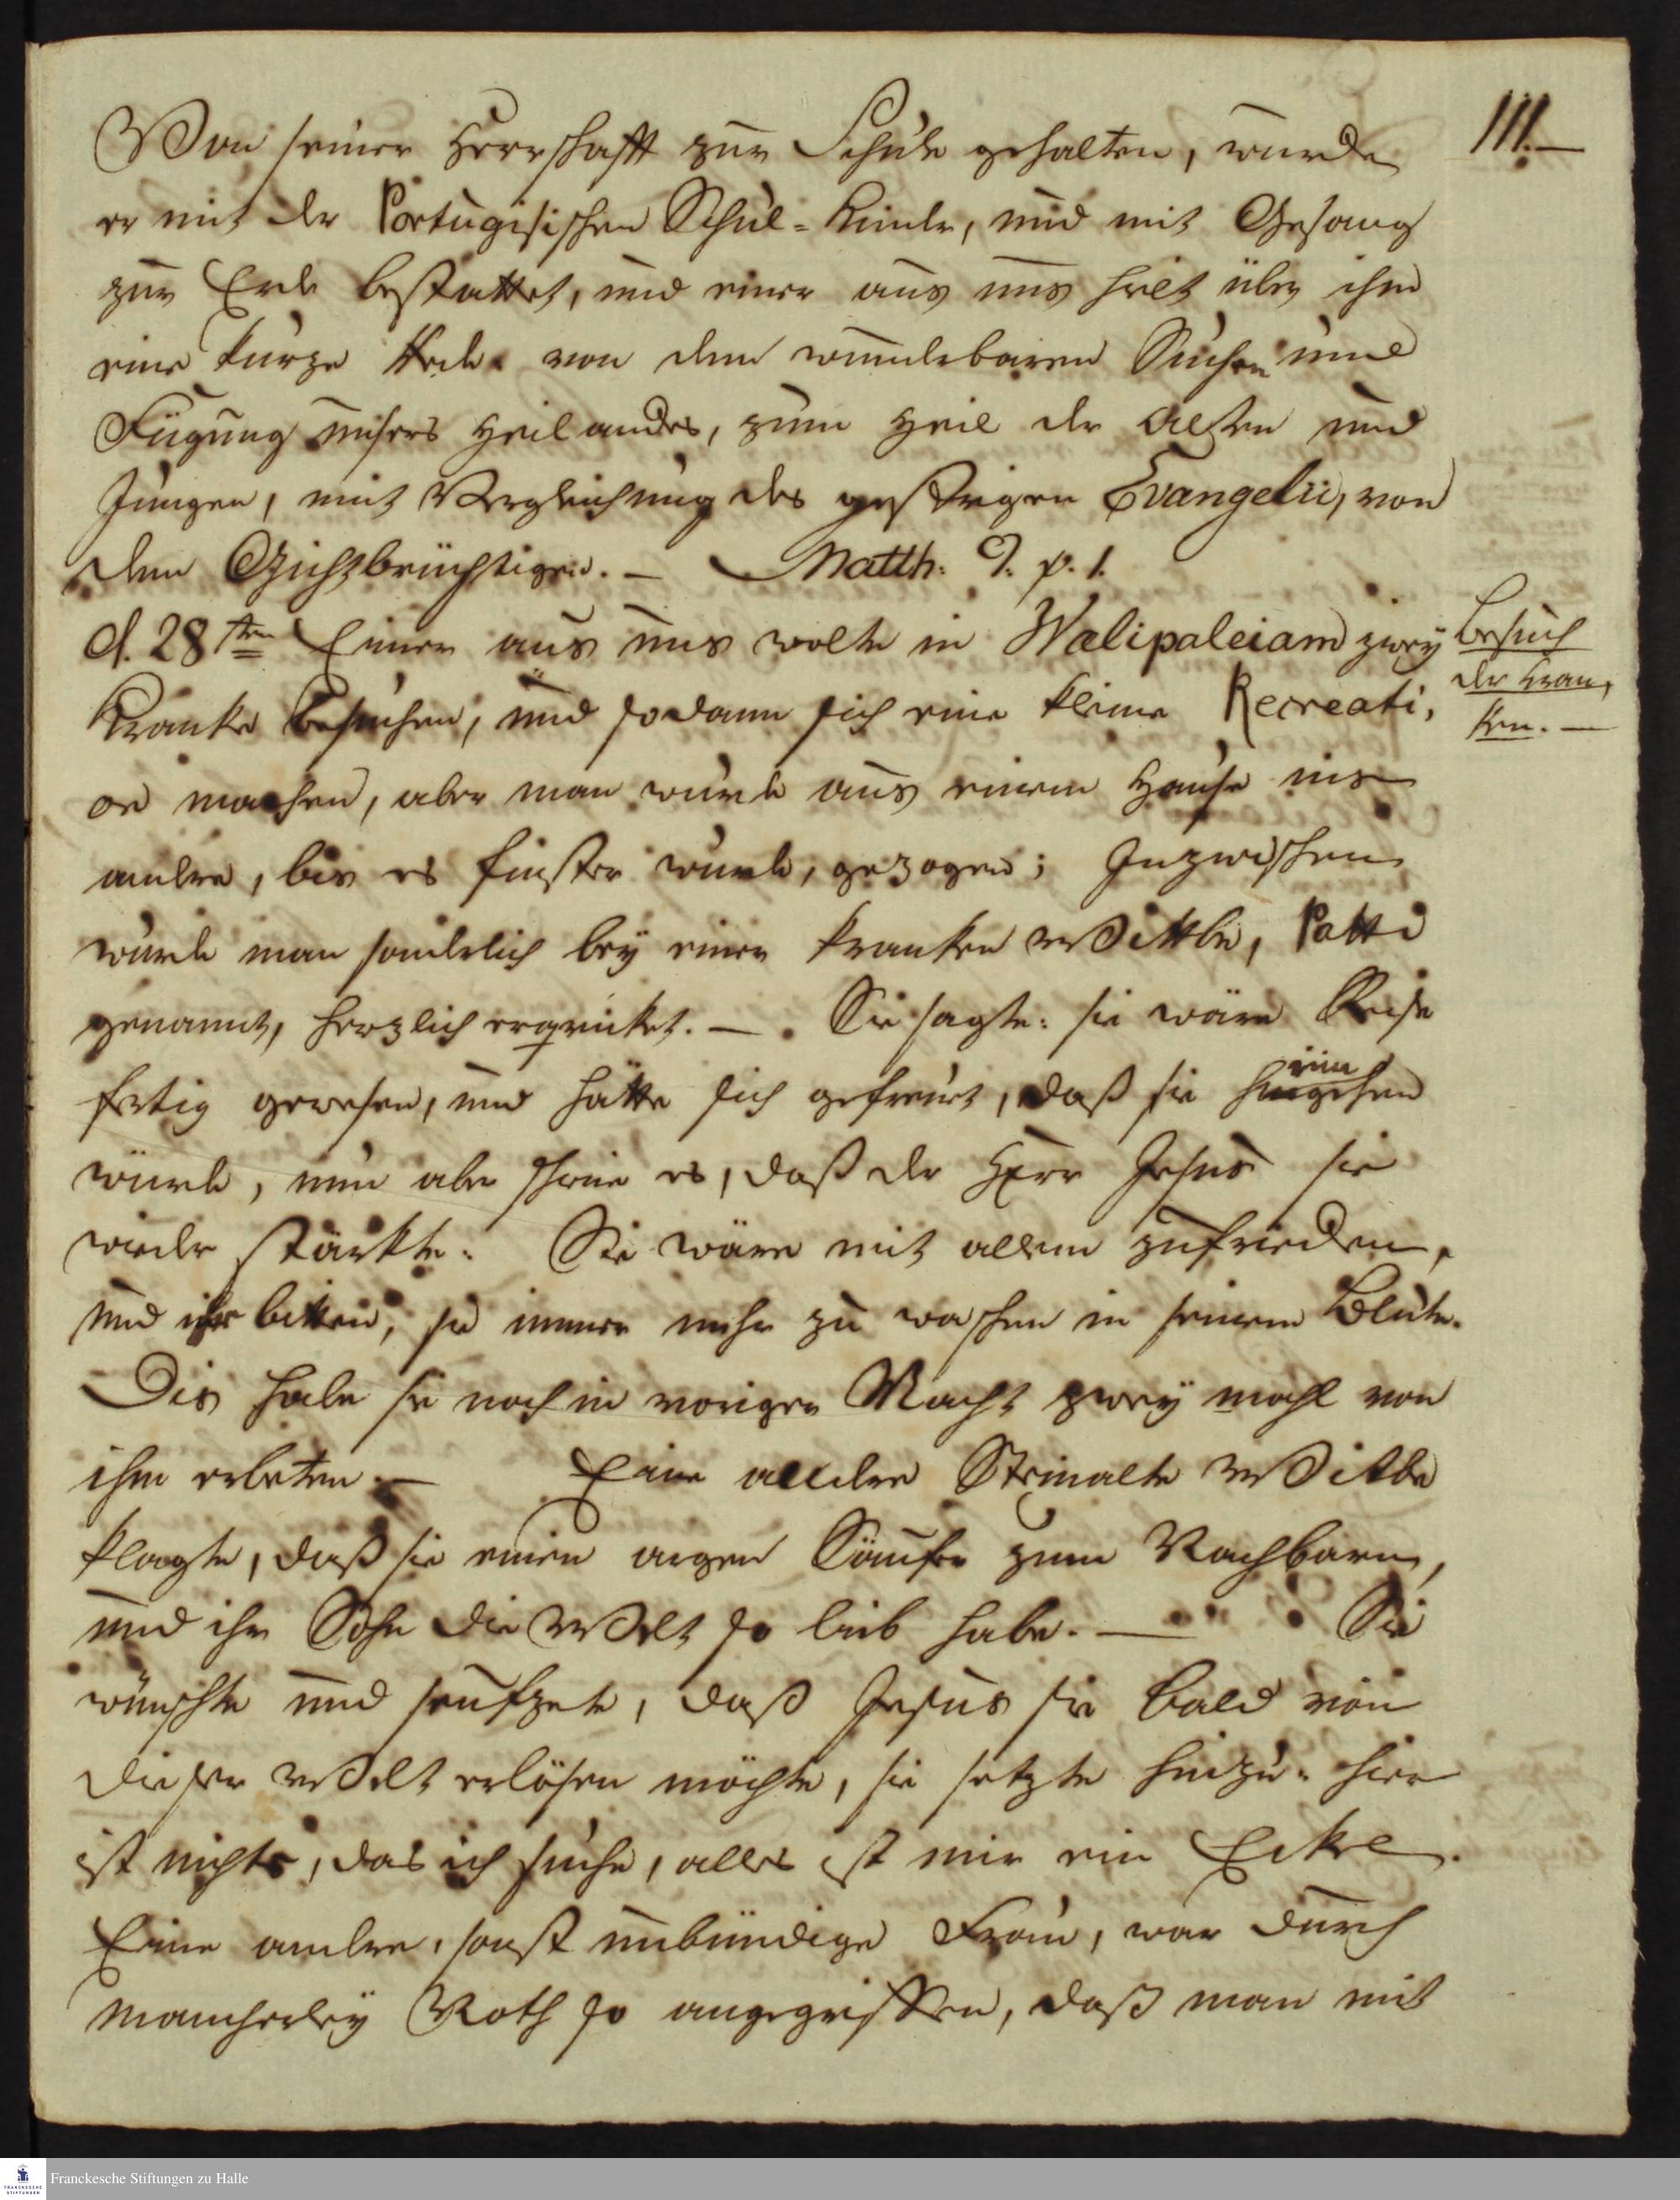 111.
Von seiner Herrschafft zur Schule gehalten, wurde
er mit der Portugisischen Schul-Kinder, und mit Gesang
zur Erde bestattet, und einer aus uns hielt über ihm
eine kurze Rede von dem wunderbaren Suchen und
Fügung unsers Heilandes, zum Heil der Alten und
Jungen, mit Vergleichung des gestrigen Evangelii, von
dem Gichtbrüchtigen. – Matth: 9. p. 1.
d. 28ten Einer aus uns wolte in Welipaleiam zwey
Kranke besuchen, und sodann sich eine kleine Recreati,
on machen, aber man wurde aus einem Hause ins
andere, bis es finster wurde, gezogen; Inzwischen
wurde man sonderlich bey einer kranken Wittbe, Patti
genannt, herzlich erqvicket. – Sie sagte: sie wäre Reise
fertig gewesen, und hätte sich gefreut, daß sie heimgehen
würde, nun aber scheine es, daß der HErr Jesus sie
wieder stärkte. Sie wäre mit allem zufrieden,
und ihr bitten, sie immer mehr zu waschen in seinem Blute.
Dis habe sie noch in voriger Nacht zwey mahl von
ihm erbeten. – Eine andere Steinalte Wittbe
klagte, daß sie einen argen Säufer zum Nachbarn,
und ihr Sohn die Welt so lieb habe. – Sie
wünschte und seufzete, daß Jesus sie bald von
dieser Welt erlösen möchte, sie setzte hinzu: hier
ist nichts, das ich suche, alles ist mir ein Eckel.
Eine andere, sonst unbändige Frau, war durch
mancherley Noth so angegriffen, daß man mit
Besuch
der Kran,
ken. –
Franckesche Stiftungen zu Halle